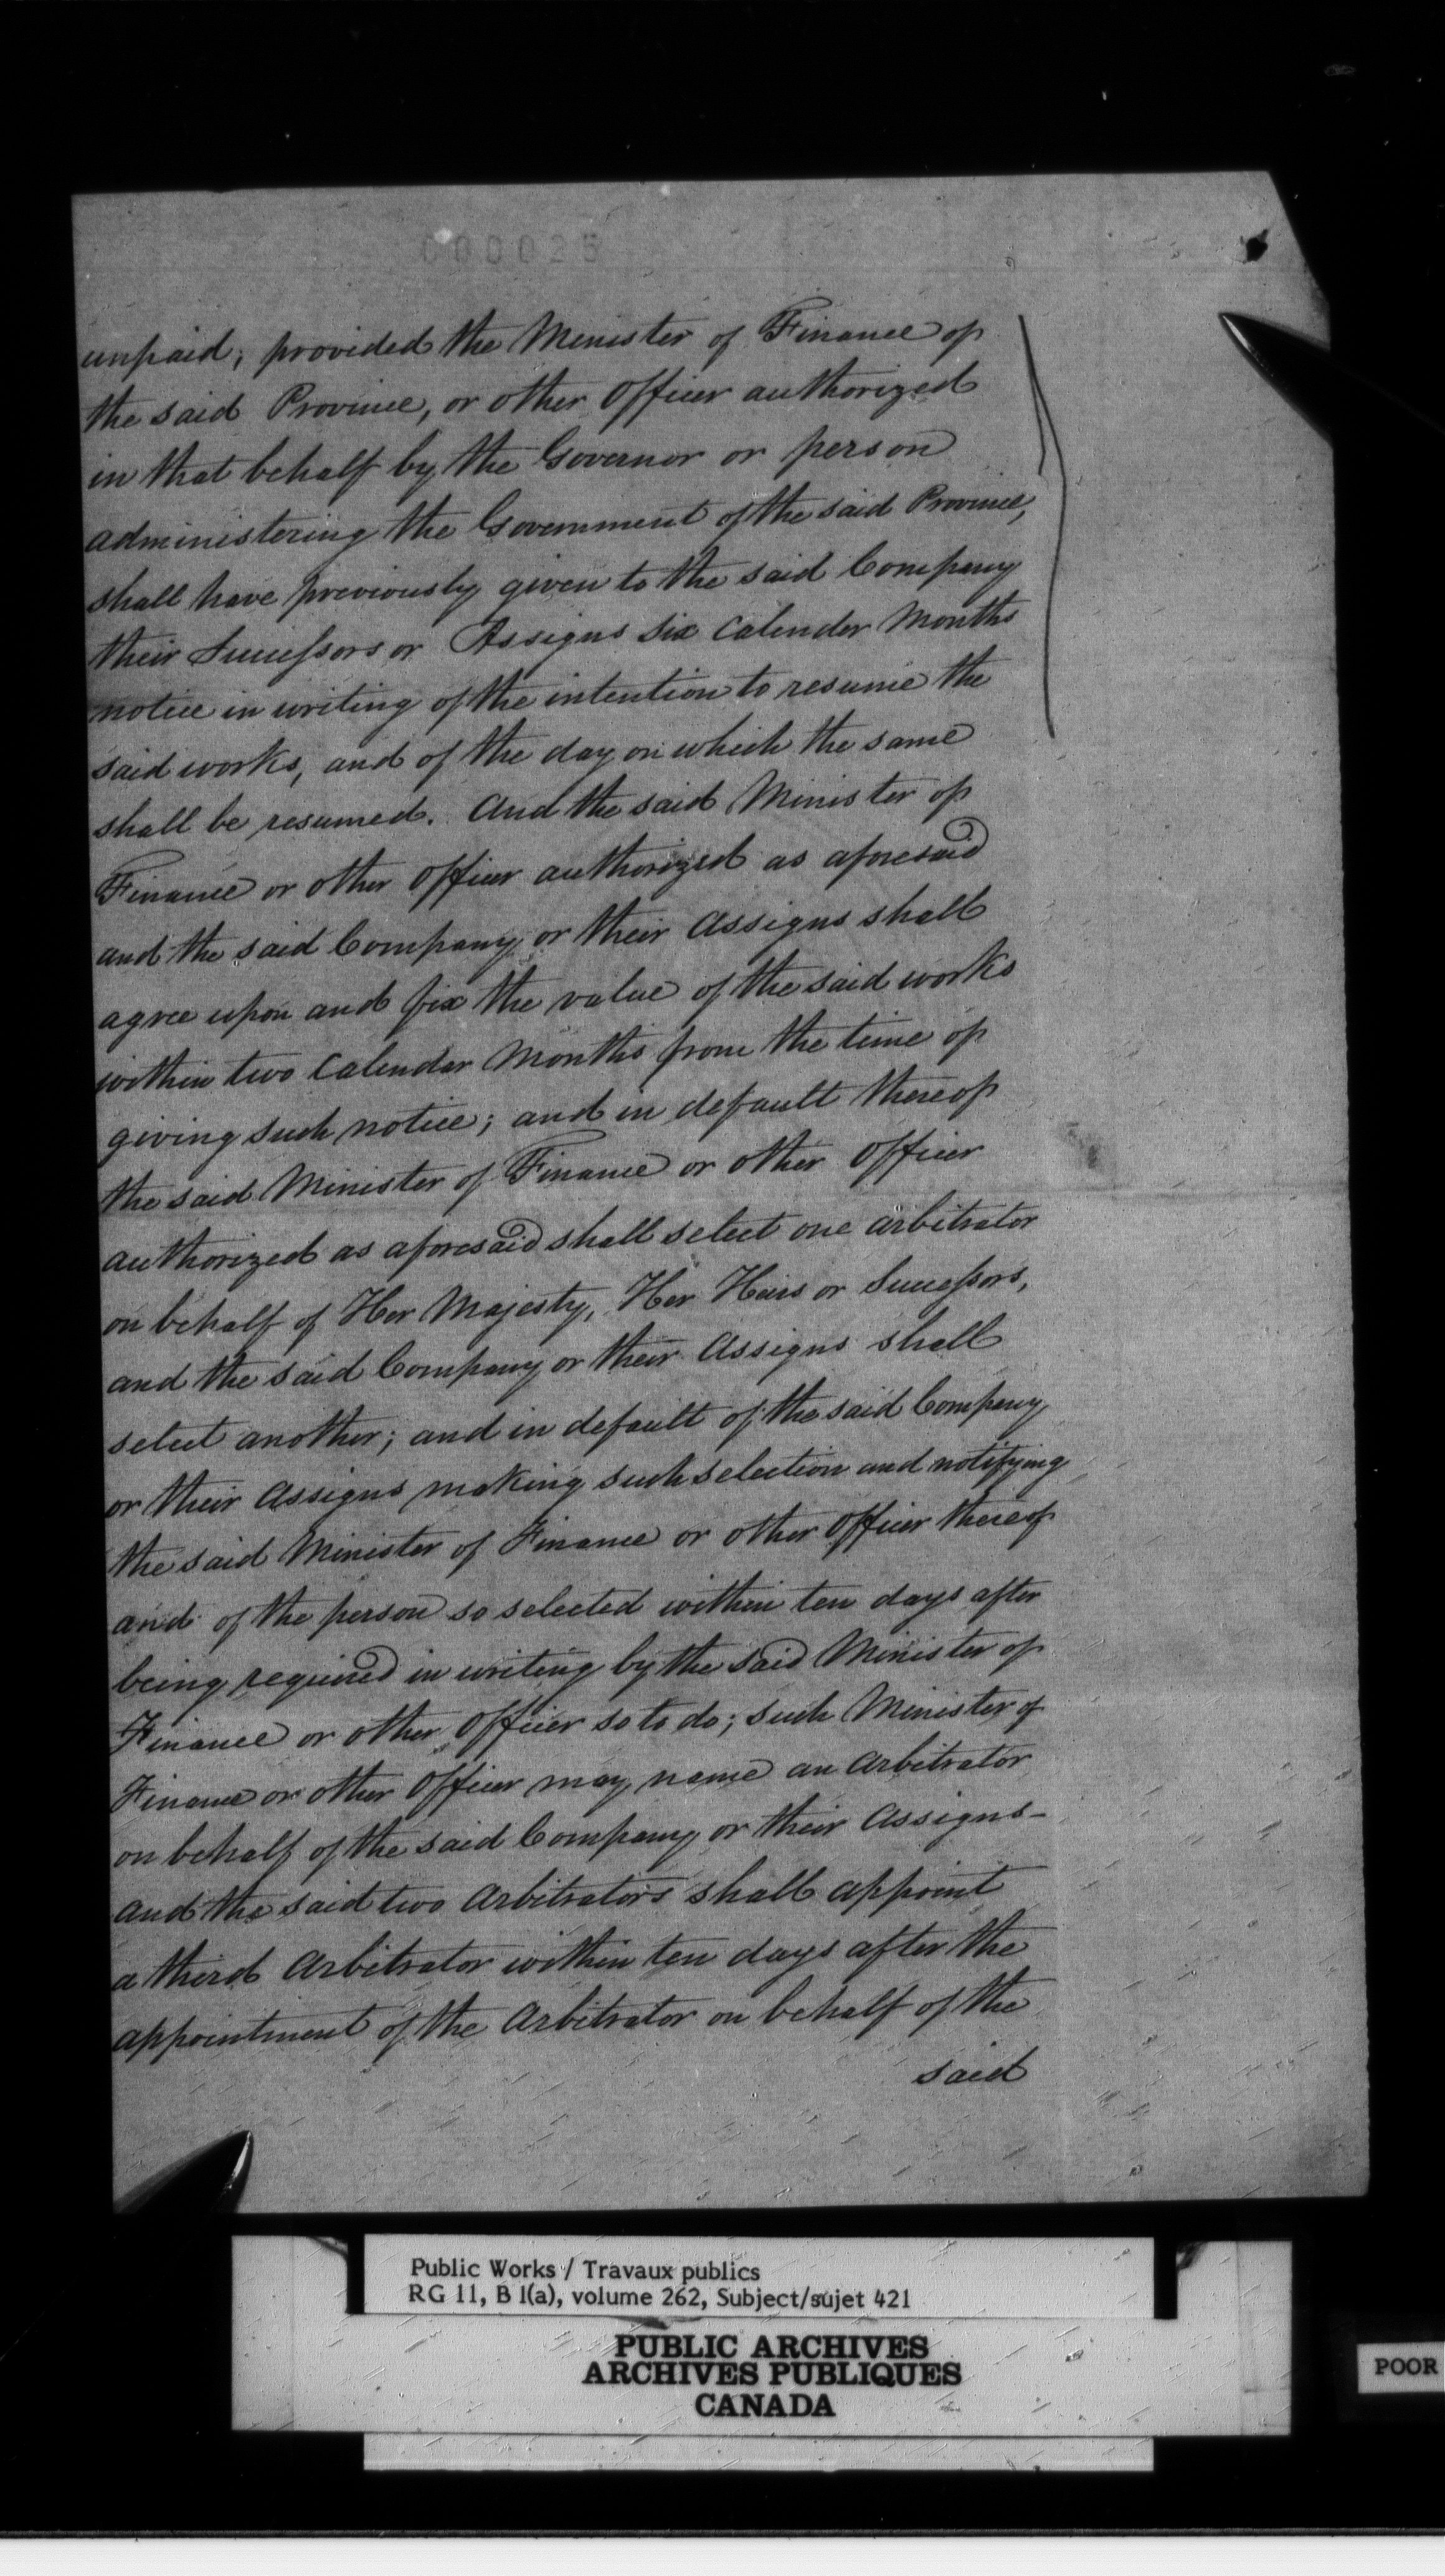 000025
unpaid; provided the Minister of Finance of
the said Province, or other Officer authorized
in that behalf by the Governor or person
administering the Government of the said Province,
shall have previously given to the said Company
their Successors or Assigns six Calender Months
notice in writing of the intention to resume the
said works, and of the day on which the same
shall be resumed. And the said Minister of
Finance or other Officer authorized as aforesaid
and the said Company or their Assigns shall
agree upon and fix the value of the said works
within two Calendar Months from the time of
giving such notice; and in default thereof
the said Minister of Finance or other Officer
authorized as aforesaid shall select one arbitrator
on behalf of Her Majesty, Her Heirs or Successors,
and the said Company or their Assigns shall
select another; and in default of the said Company
or their Assigns making such selection and notifying
the said Minister of Finance or other Officer thereof
and of the person so selected within ten days after
being required in writing by the said Minister of
Finance or other Officer so to do; such Minister of
Finance or other Officer may name an Arbitrator
on behalf of the said Company or their Assigns-
and the said two Arbitrators shall appoint
a third Arbitrator within ten days after the
appointment of the Arbitrator on behalf of the
said
Public Works / Travaux publics
RG 11, B 1(a), volume 262, Subject/sujet 421
PUBLIC ARCHIVES
ARCHIVES PUBLIQUES
CANADA
POOR